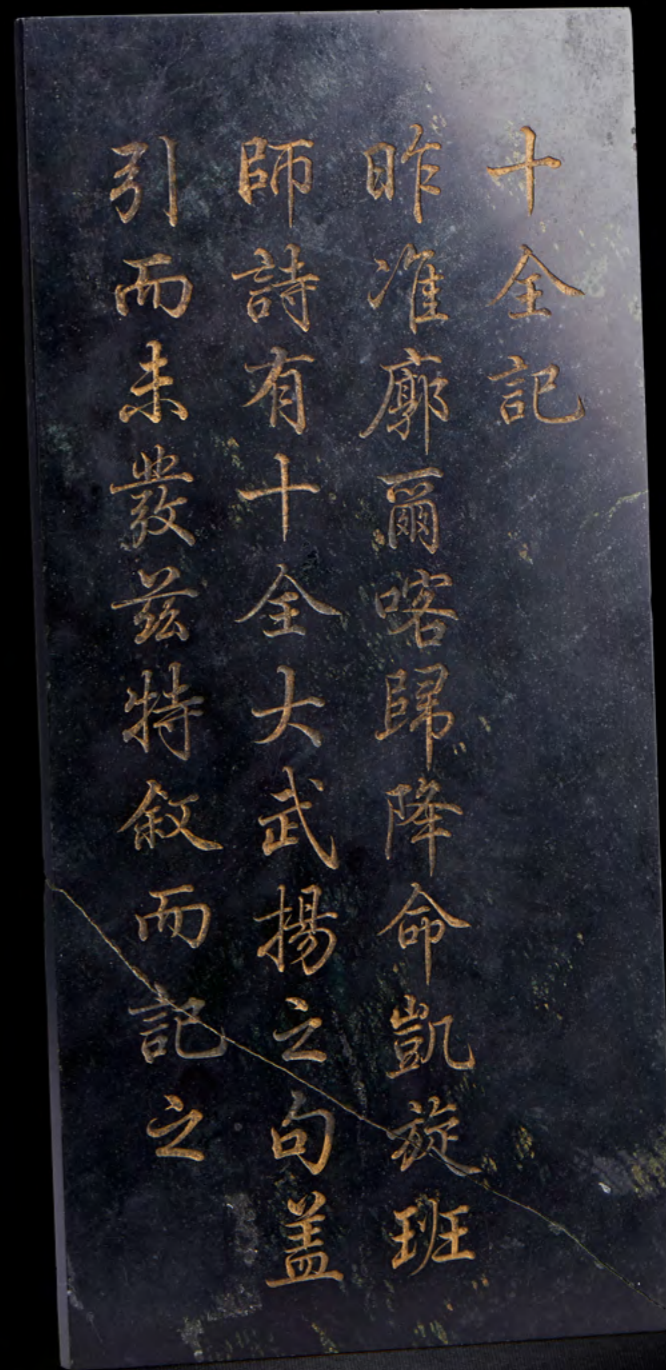 十全記
昨准廓爾喀歸降命凱旋班
師詩有十全大武揚之句蓋
引而未發兹特敘而記之